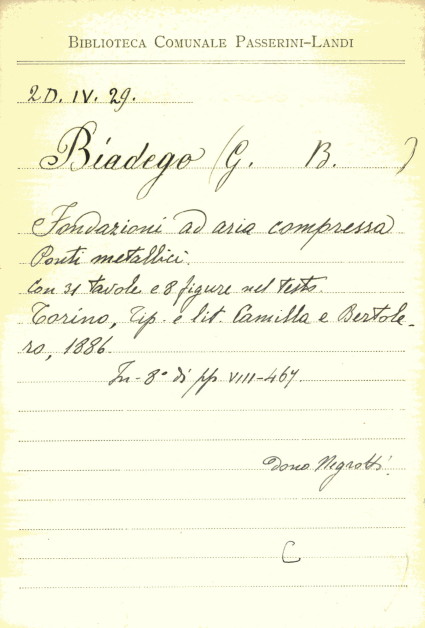 BIBLIOTECA COMUNALE PASSERINI-LANDI
2D. IV. 29.
Biadego (G. B. )
Fondazioni ad aria compressa
Ponti metallici.
Con 31 tavole e 8 figure nel testo.
Torino, Tip. e lit. Camilla e Bertole-
ro, 1886.
In-8° di pp VIII-467.
Dono Negrotti.
C